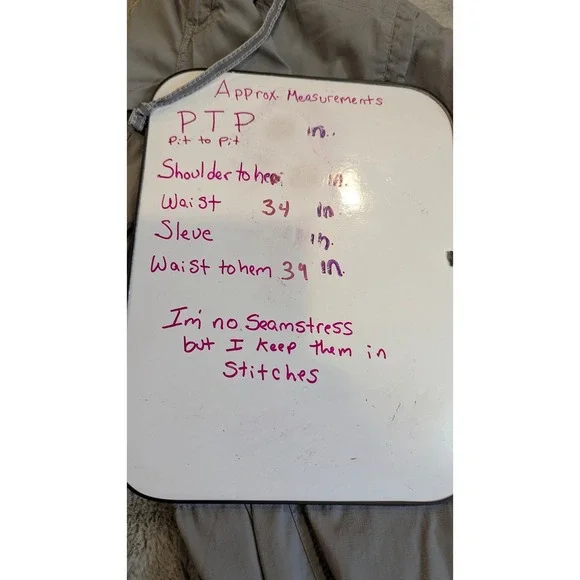 Approx. Measurements
PTP in..
Pit to Pit
Shoulder to hem in.
Waist 34 in.
Sleve in.
Waist to hem 39 in.
Im no Seamstress
but I keep them in
Stitches